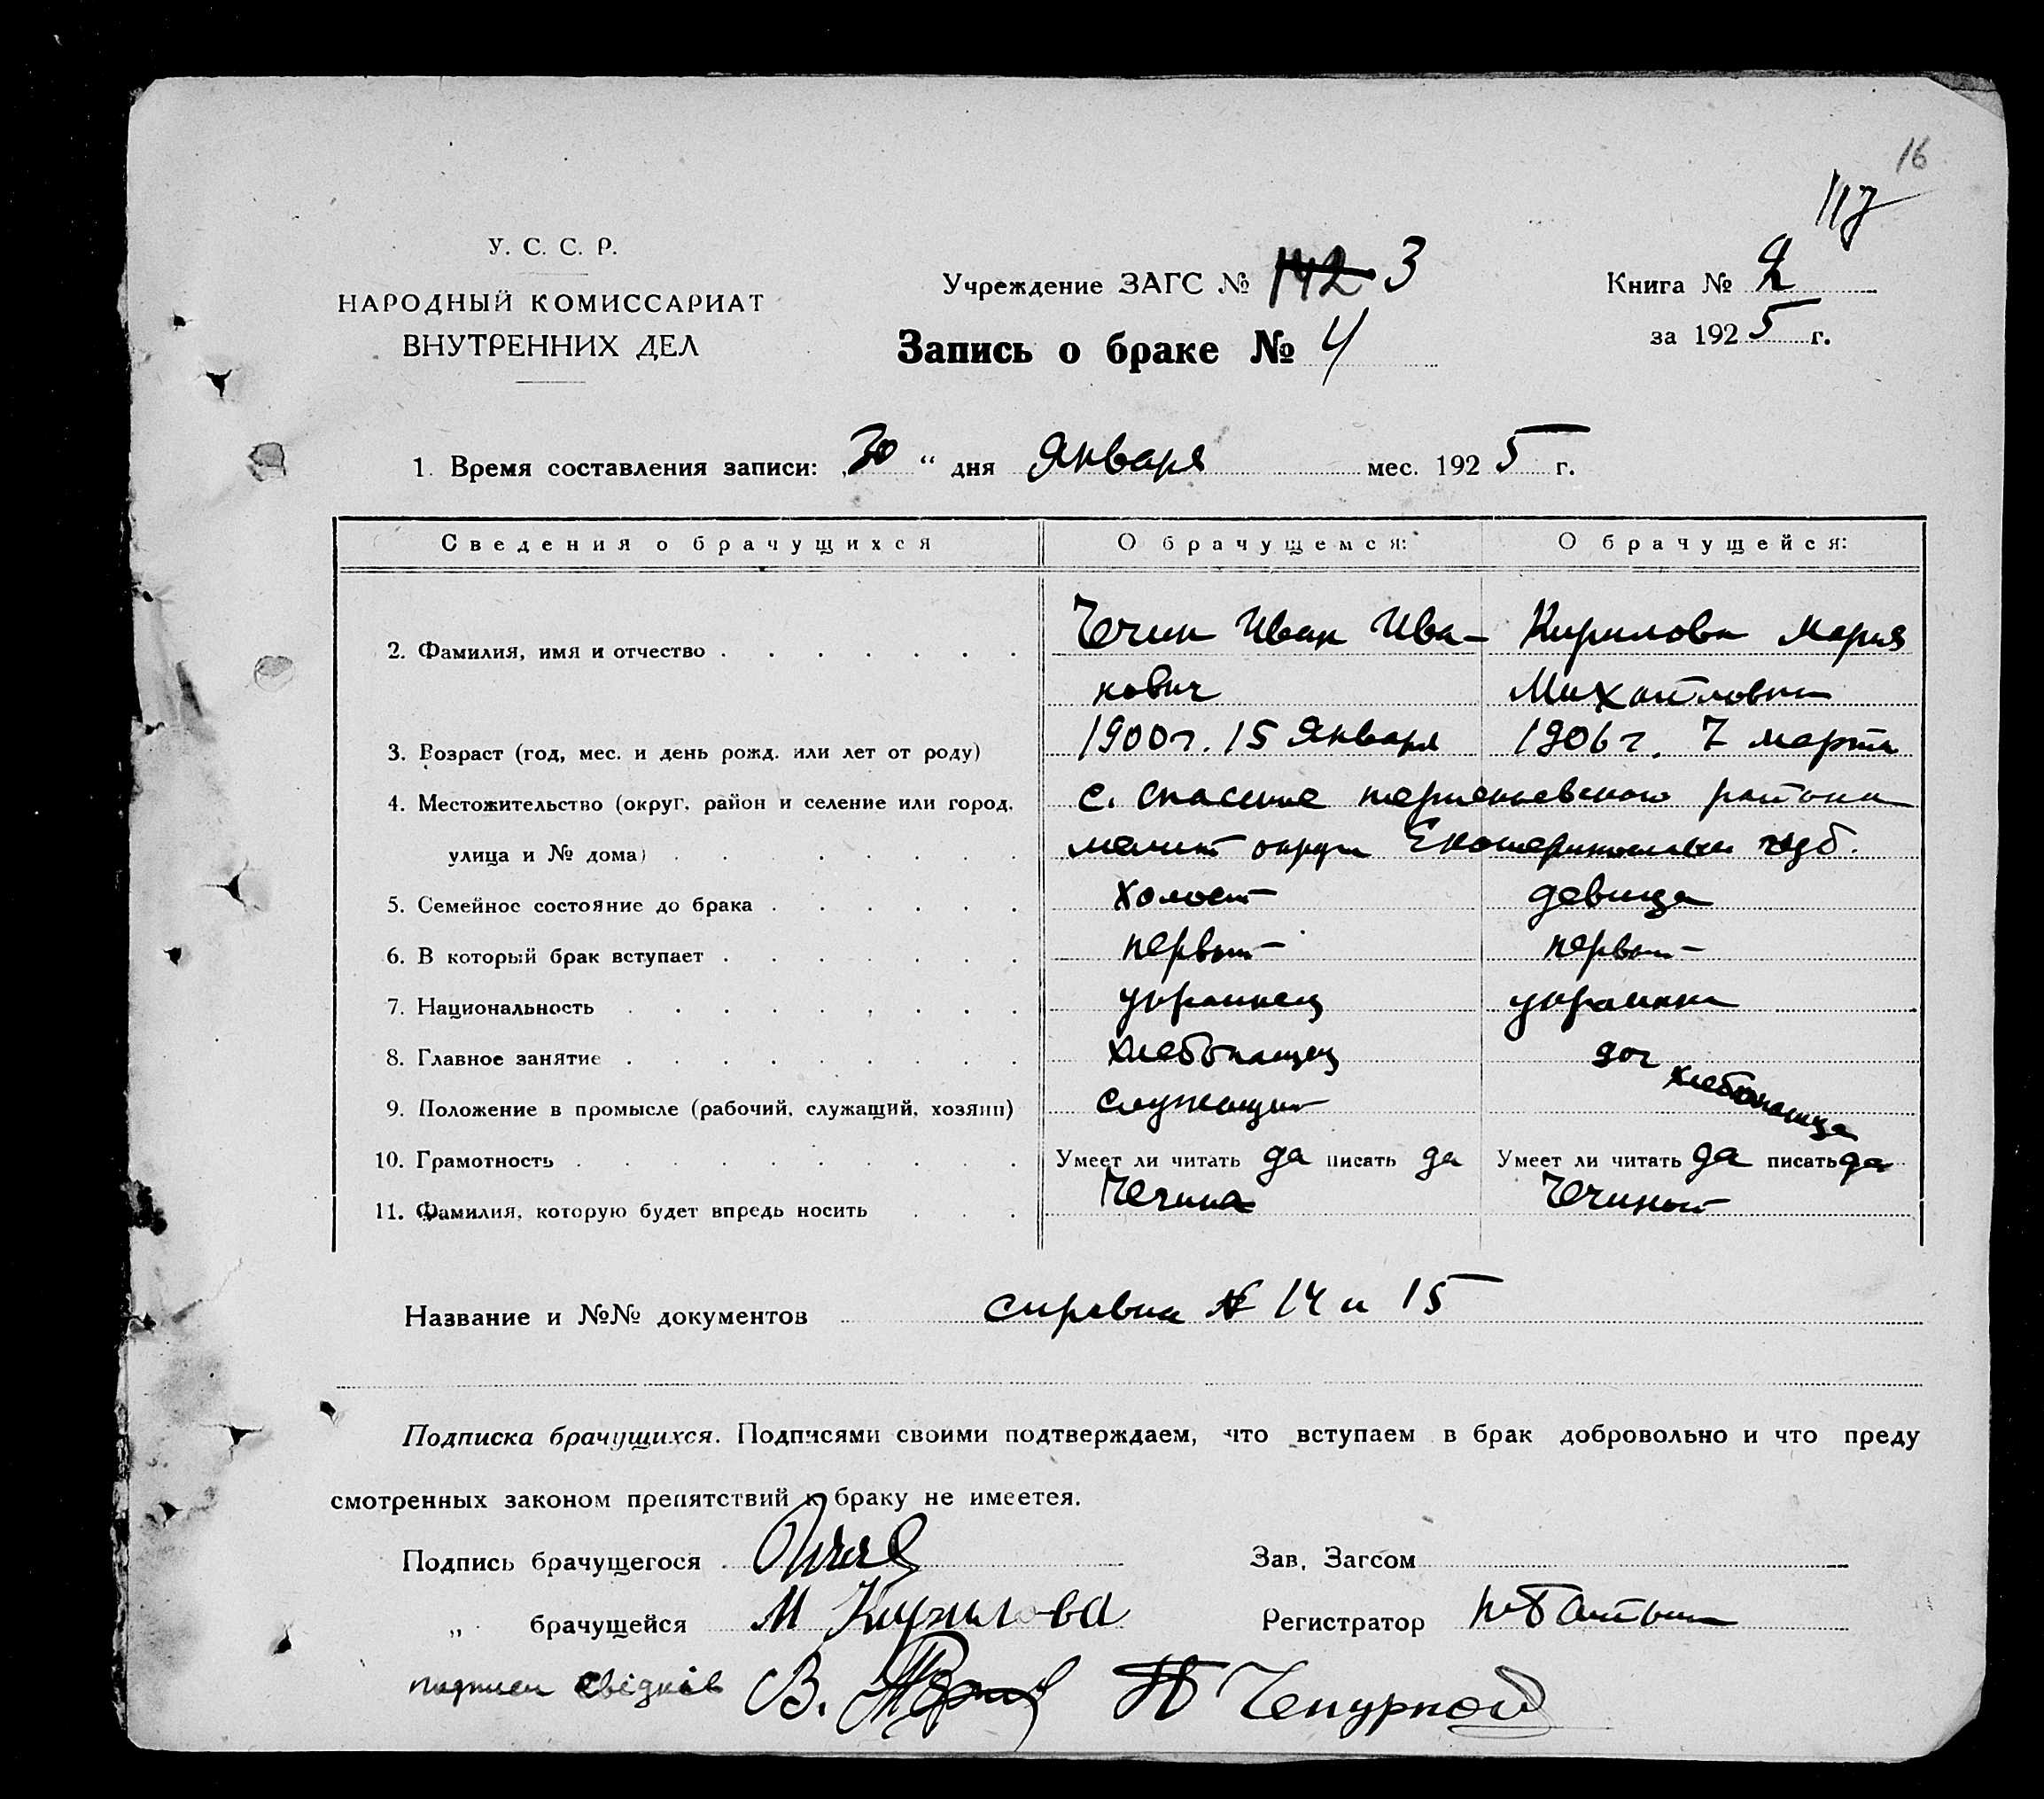 16
117
У. С. С. Р.
НАРОДНЫЙ КОМИССАРИАТ
ВНУТРЕННИХ ДЕЛ
Учреждение ЗАГС № 142 3
Книга № 2
за 1925 г.
Запись о браке № 4
1. Время составления записи: 30 “ дня Января мес. 1925 г.
Сведения о брачущихся О брачущемся: О брачущейся:
2. Фамилия, имя и отчество Чечин Иван Ива- Кирилова Мария
нович Михайловна
3. Возраст (год, мес. и день рожд. или лет от роду) 1900 г. 15 Января 1906 г. 7 марта
4. Местожительство (округ, район и селение или город, с. района
улица и № дома) мелит округа губ.
5. Семейное состояние до брака холост девица
6. В который брак вступает первый первый
7. Национальность украинец украинка
8. Главное занятие хлебопашец доч хлебопашца
9. Положение в промысле (рабочий, служащий, хозяин) служащий
10. Грамотность Умеет ли читать да писать да Умеет ли читать да писать да
11. Фамилия, которую будет впредь носить Чечина Чечиной
Название и №№ документов справка № 14 и 15
Подписка брачущихся. Подписями своими подтверждаем, что вступаем в брак добровольно и что преду
смотренных законом препятствий к браку не имеется.
Подпись брачущегося Зав. Загсом
„ брачущейся М Кирилова Регистратор
подписи свідків В. Чепурной